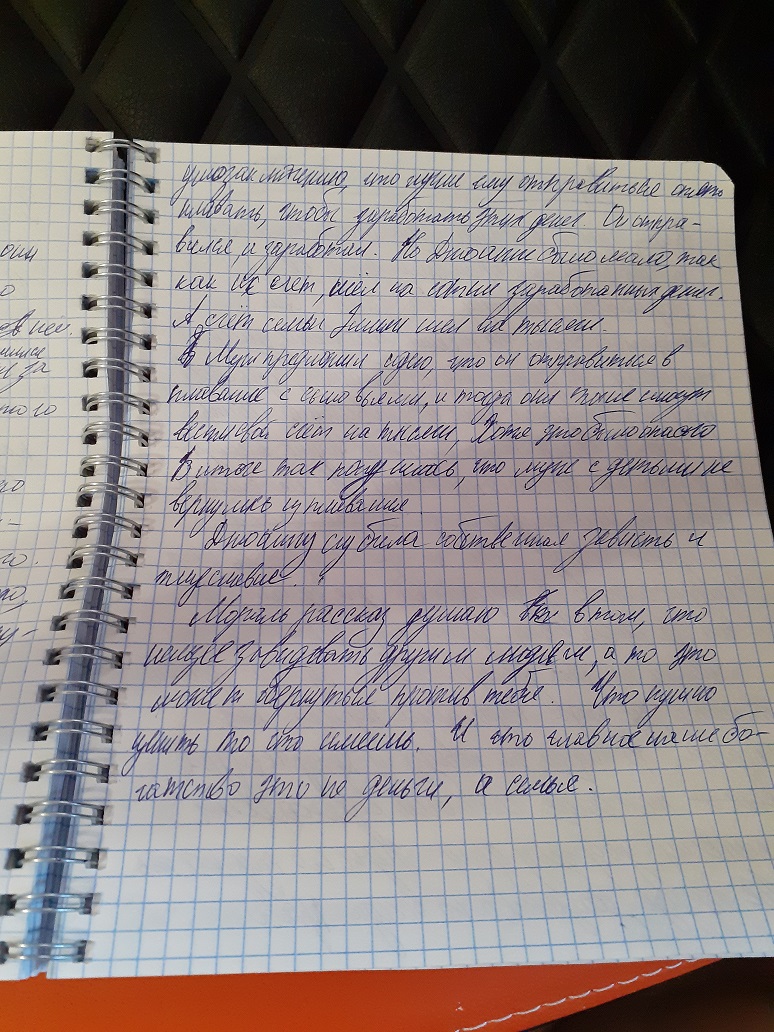 что лучше ему отправиться опять
плавать, чтобы заработать этих денег. Он отпра-
вился, и заработал. Но Джоанне было мало, так
как их счет, шёл на сотни заработанных денег.
А счёт семьи Эмили шел на тысячи.
Муж предложил идею, что он отправиться в
плавание с сыновьями, и тогда они тоже смогут
вести свой счёт на тысячи, Хотя это было опасно
В итоге так получилось, что муж с детьми не
вернулись из плавания.
Джоанну сгубила собственная зависть и
тщеславие.
Мораль рассказ думаю в том, что
нельзя завидовать другим людям, а то это
может обернуться против тебя. Что нужно
ценить то что имеешь. И что главное наше бо-
гатство это не деньги, а семья.
оин
о
в ней.
за
ного
го
-
го.